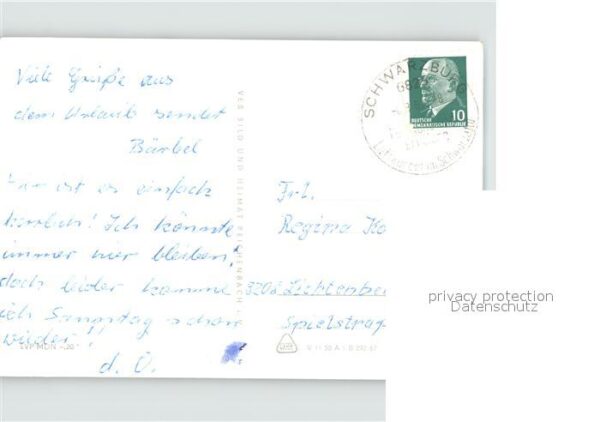 Viele Grüße aus
dem Urlaub sendet
Bärbel
Hier ist es einfach
herrlich! Ich könnte
immer hier bleiben,
doch leider komme
ich Samstag schon
wieder!!
d. O.
VEB BILD UND HEIMAT REICHENBACH i.
SCHWARZBURG
DEUTSCHE
DEMOKRATISCHE REPUBLIK
10
Frl.
Regina Ko
Lichtenber
Spielstraß
V 11 50 A 1 B 292/67
privacy protection
Datenschutz